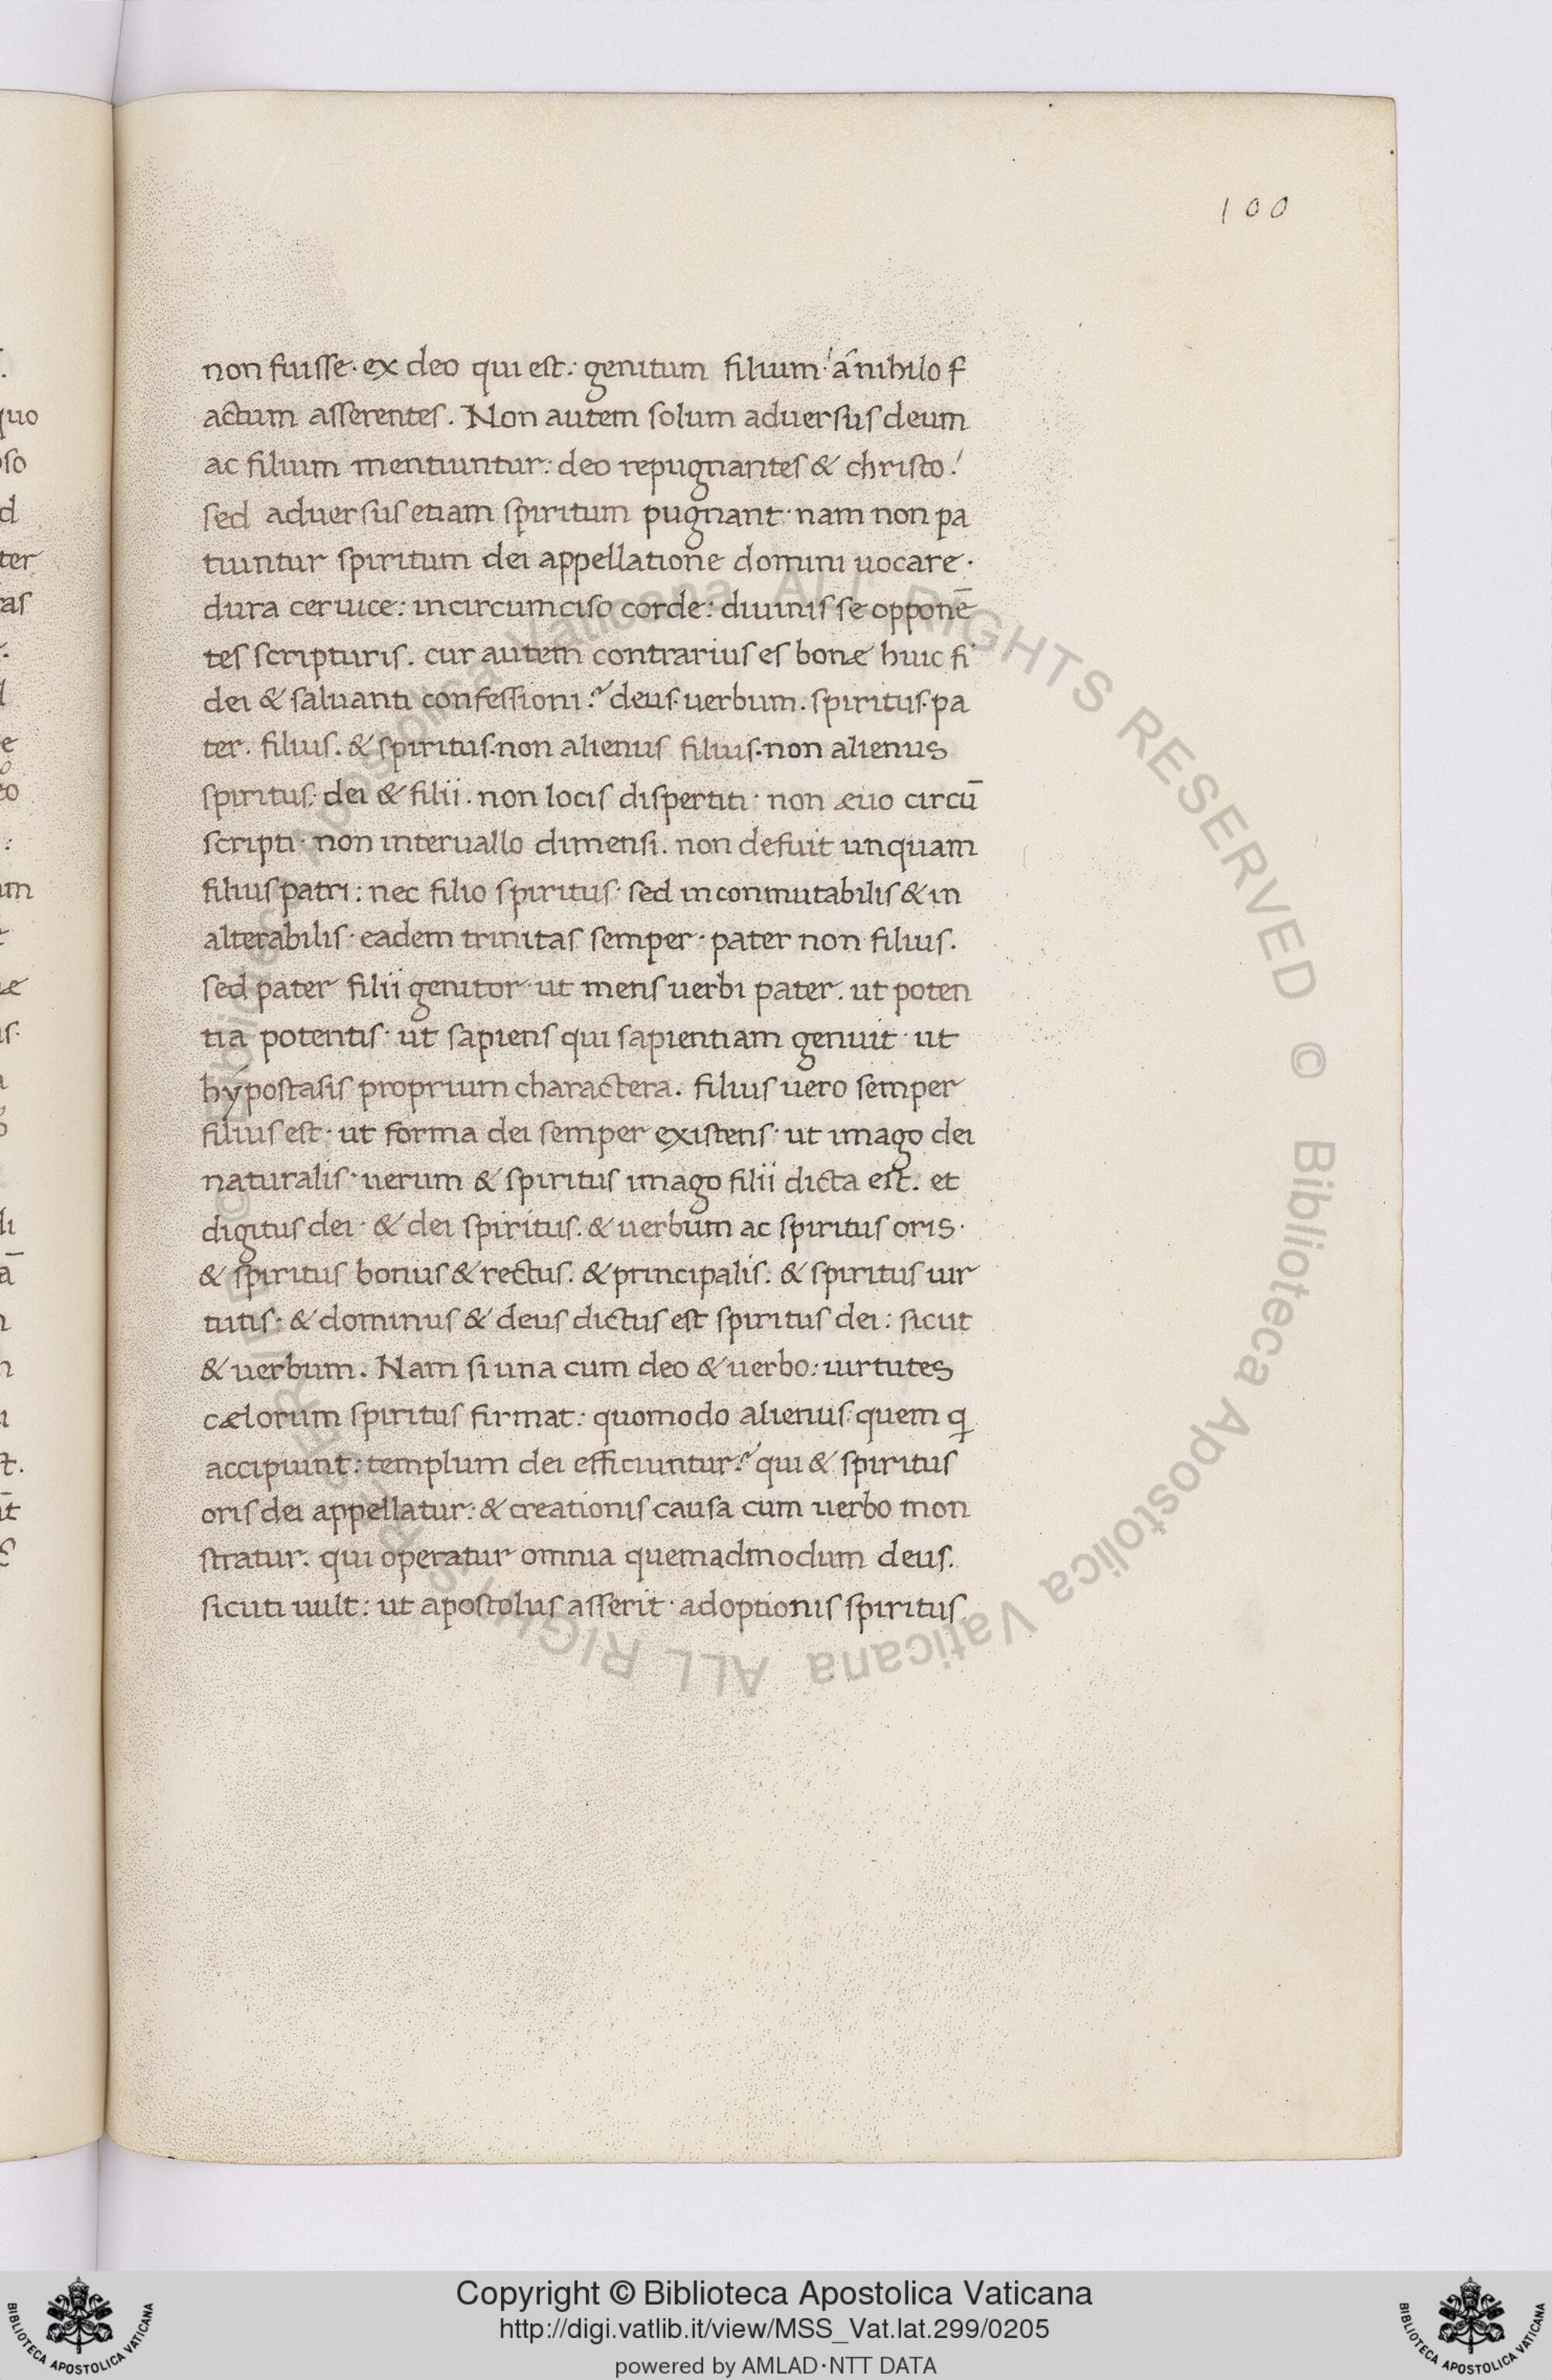 100
non fuisse· ex deo qui est: genitum filium·' a nihilo f
actum asserentes. Non autem solum aduersus deum
ac filium mentiuntur: deo repugnantes & christo.'
sed aduersus etiam spiritum pugnant· nam non pa
tiuntur spiritum dei appellatione domini uocare·
dura ceruice: incircumciso corde: diuinis se opponē
tes scripturis. cur autem contrarius es bonæ huic fi
dei & saluanti confessioni? deus· uerbum. spiritus· pa
ter. filius. & spiritus· non alienus filius· non alienus
spiritus· dei & filii. non locis dispertiti· non æuo circū
scripti· non interuallo dimensi. non defuit unquam
filius patri: nec filio spiritus· sed inconmutabilis & in
alterabilis· eadem trinitas semper· pater non filius.
sed pater filii genitor· ut mens uerbi pater. ut poten
tia potentis· ut sapiens qui sapientiam genuit· ut
hypostasis proprium charactera. filius uero semper
filius est· ut forma dei semper existens· ut imago dei
naturalis· uerum & spiritus imago filii dicta est. et
digitus dei· & dei spiritus. & uerbum ac spiritus oris·
& spiritus bonus & rectus. & principalis. & spiritus uir
tutis· & dominus & deus dictus est spiritus dei: sicut
& uerbum. Nam si una cum deo & uerbo: uirtutes
cælorum spiritus firmat: quomodo alienus: quem q
accipiunt: templum dei efficiuntur? qui & spiritus
oris dei appellatur: & creationis causa cum uerbo mon
stratur. qui operatur omnia quemadmodum deus.
sicuti uult: ut apostolus asserit· adoptionis spiritus
Copyright © Biblioteca Apostolica Vaticana
http://digi.vatlib.it/view/MSS_Vat.lat.299/0205
powered by AMLAD·NTT DATA